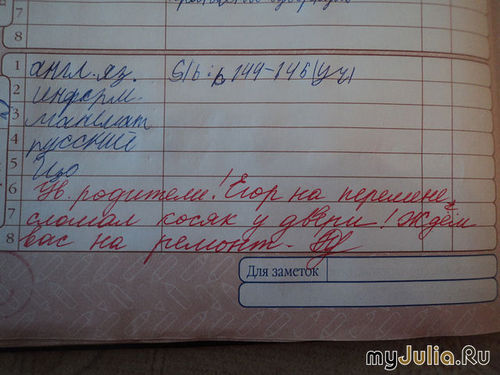 7
8
1 англ. яз. S/b: p 144-145 (у ч)
2 информ.
3 математ
4 русский
5 Изо
6 Ув. родители! Егор на перемене
7 сломал косяк у двери! Ждём
8 вас на ремонт.
Для заметок
myJulia.Ru